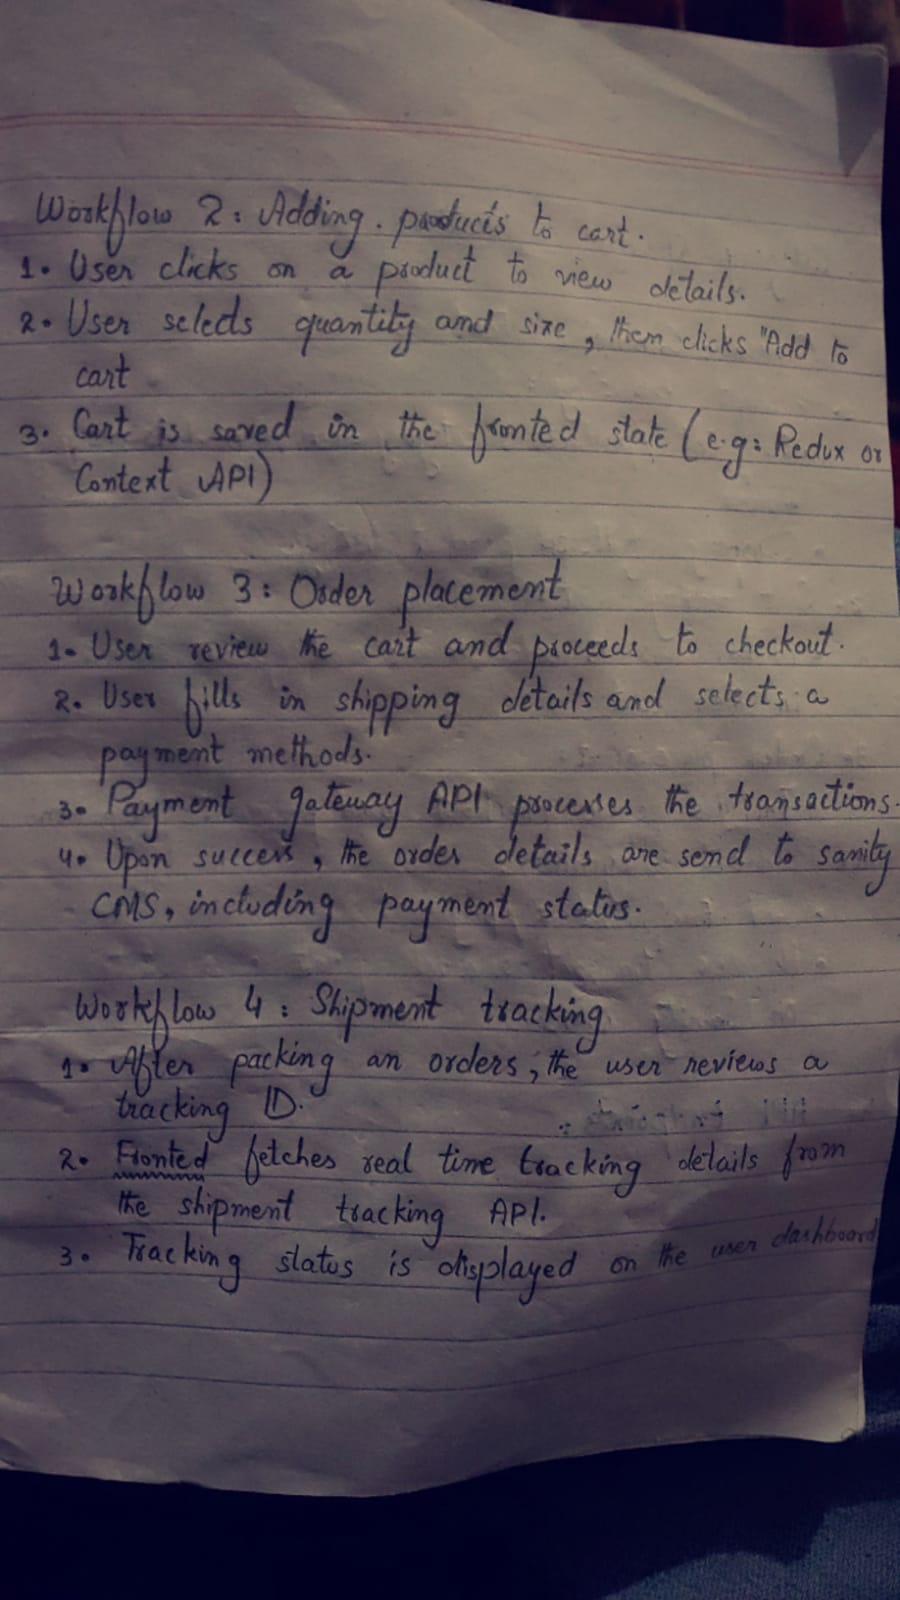 Workflow 2: Adding. products to cart.
1. User clicks on a product to view details.
2. User selects quantity and size, them clicks "Add to
cart
3. Cart is saved in the fronted state (e.g: Redux or
Context API)
Workflow 3: Order placement
1. User review the cart and proceeds to checkout.
2. User fills in shipping details and selects a
payment methods.
3. Payment gateway API processes the transactions.
4. Upon success, the order details are send to sanity
CMS, including payment status.
Workflow 4: Shipment tracking
1. After packing an orders, the user reviews a
tracking ID.
2. Fronted fetches real time tracking details from
the shipment tracking API.
3. Tracking status is displayed on the user dashboard